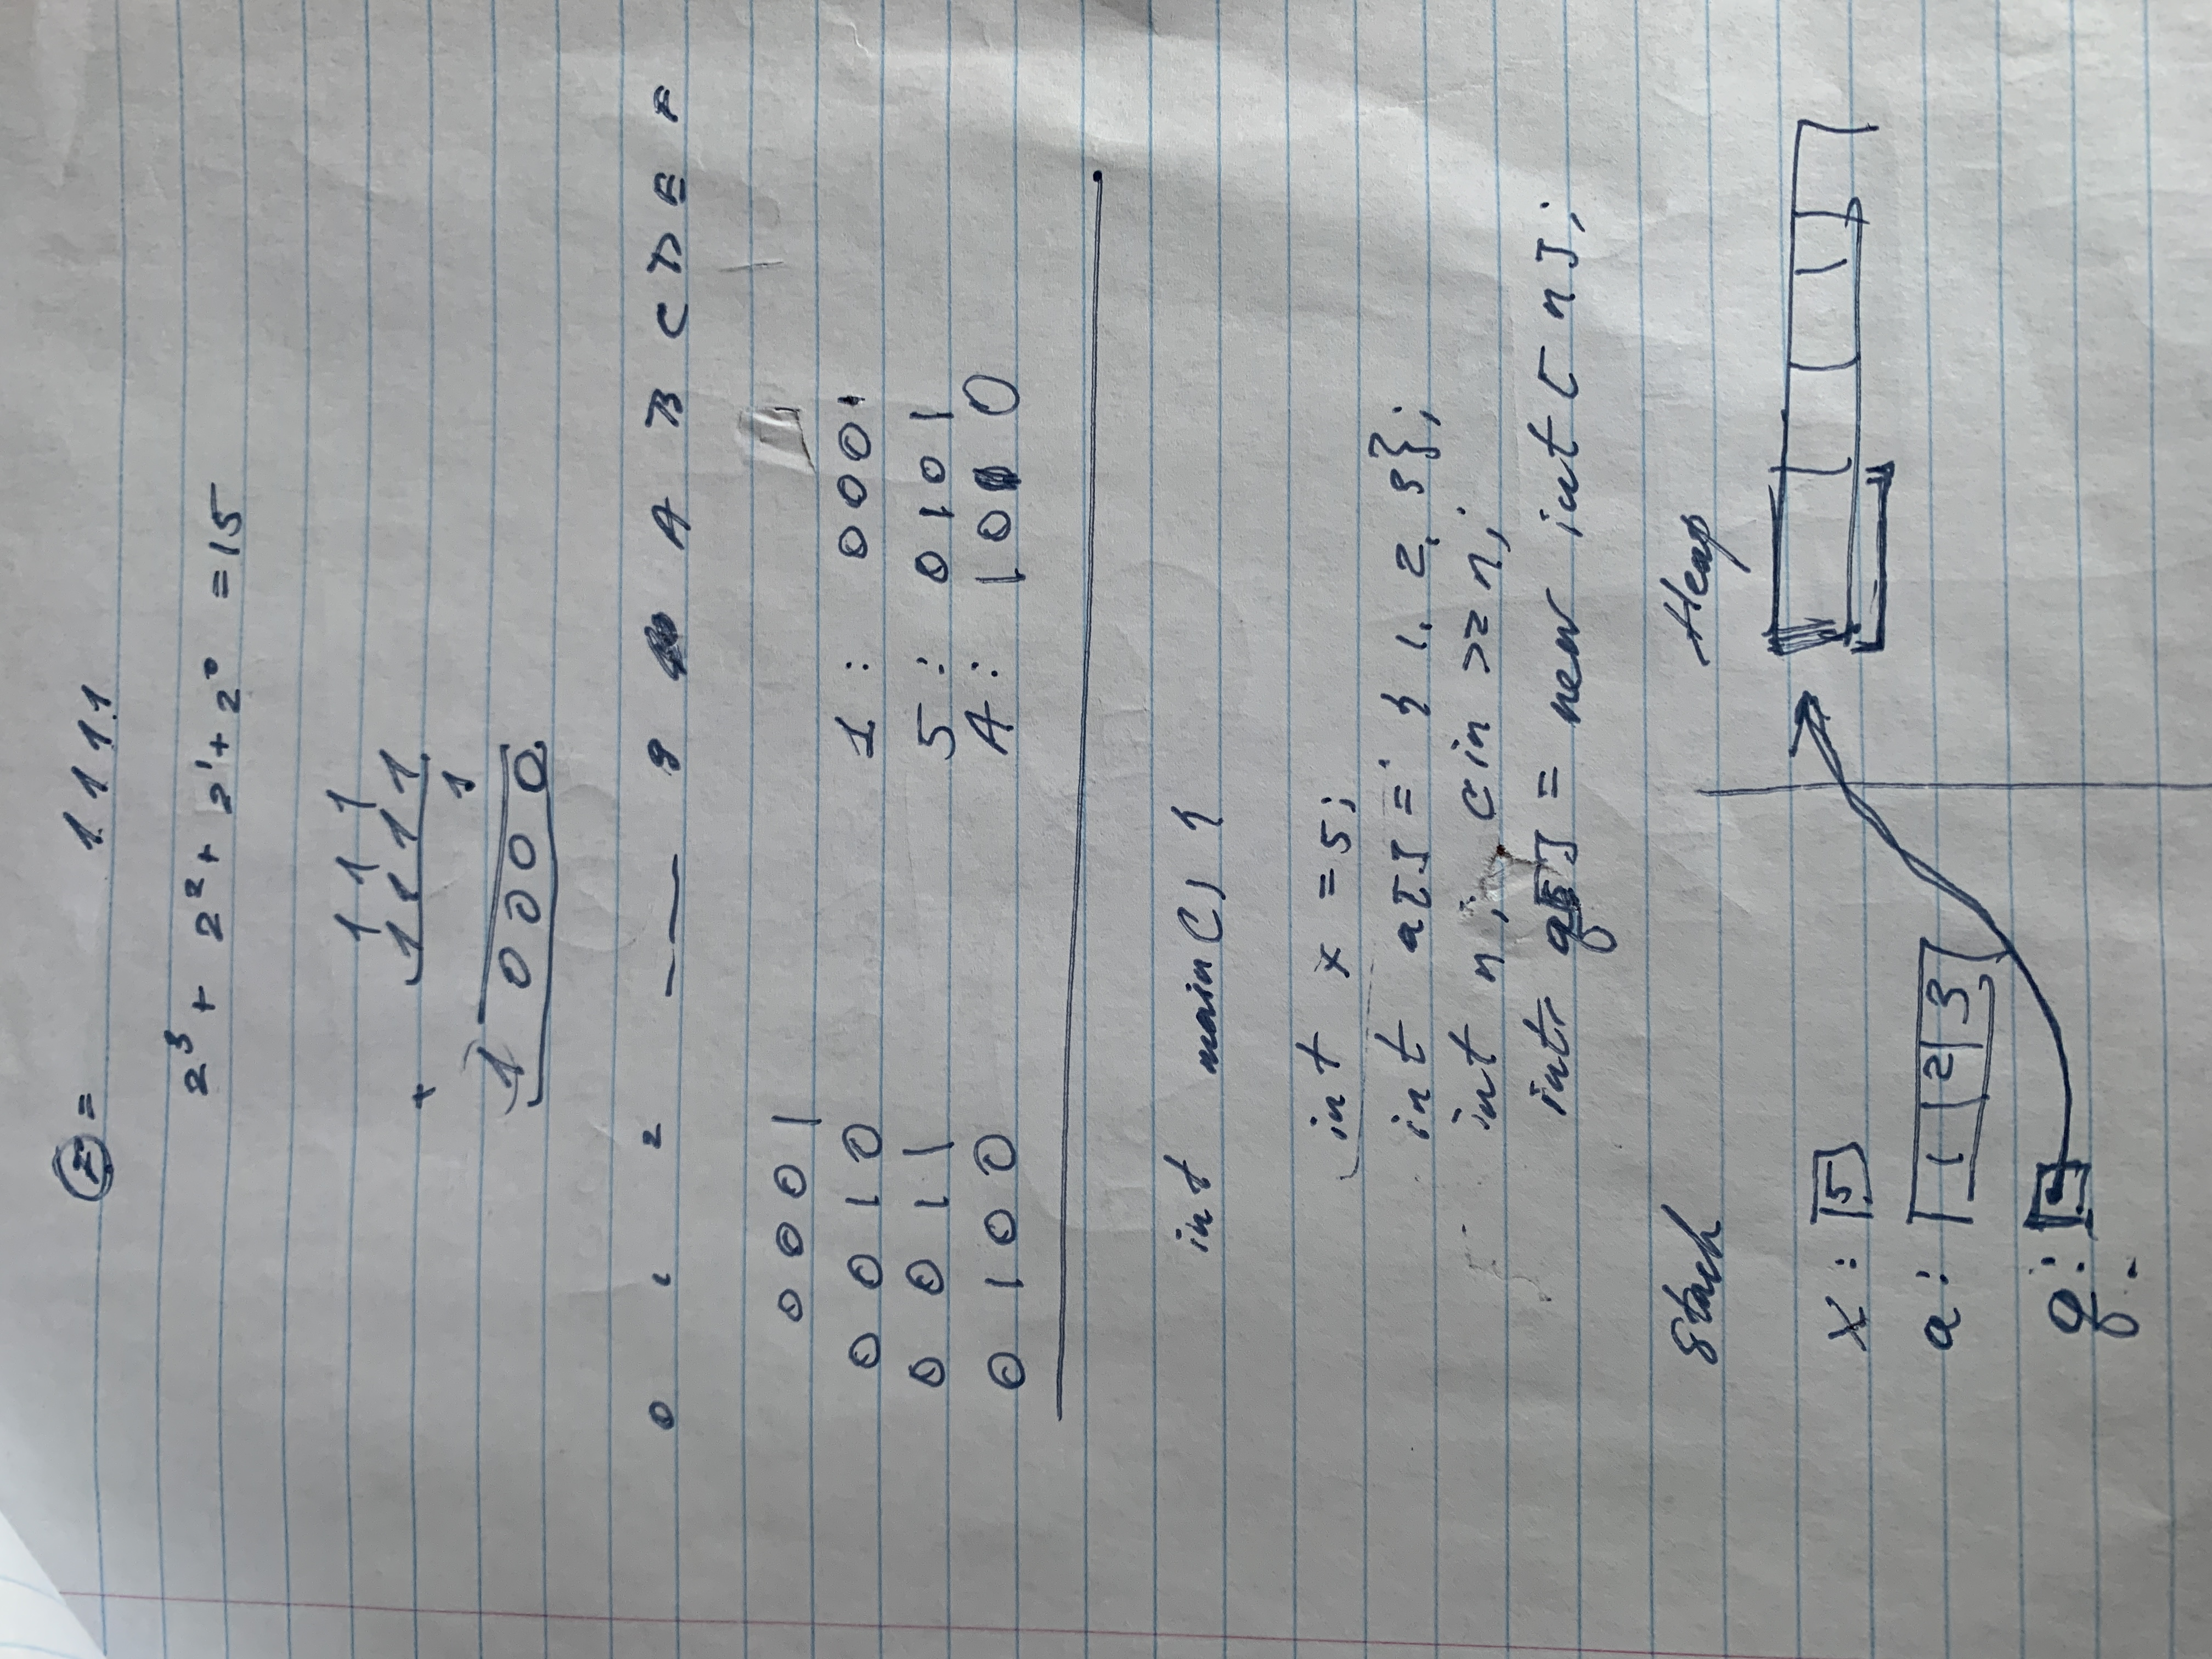 F = 1111
2³ + 2² + 2¹ + 2⁰ = 15
1 1 1
1 1 1 1
+ 1
1 0 0 0 0
0 1 2 — — 9 A B C D E F
0 0 0 1
0 0 1 0 1 : 0001
0 0 1 1 5 : 0101
0 1 0 0 A : 1010
int main() {
int x = 5;
int a[] = { 1, 2, 3};
int n; cin >> n;
int q[] = new int [n];
Stack Heap
x : 5
a : 1 2 3
q :